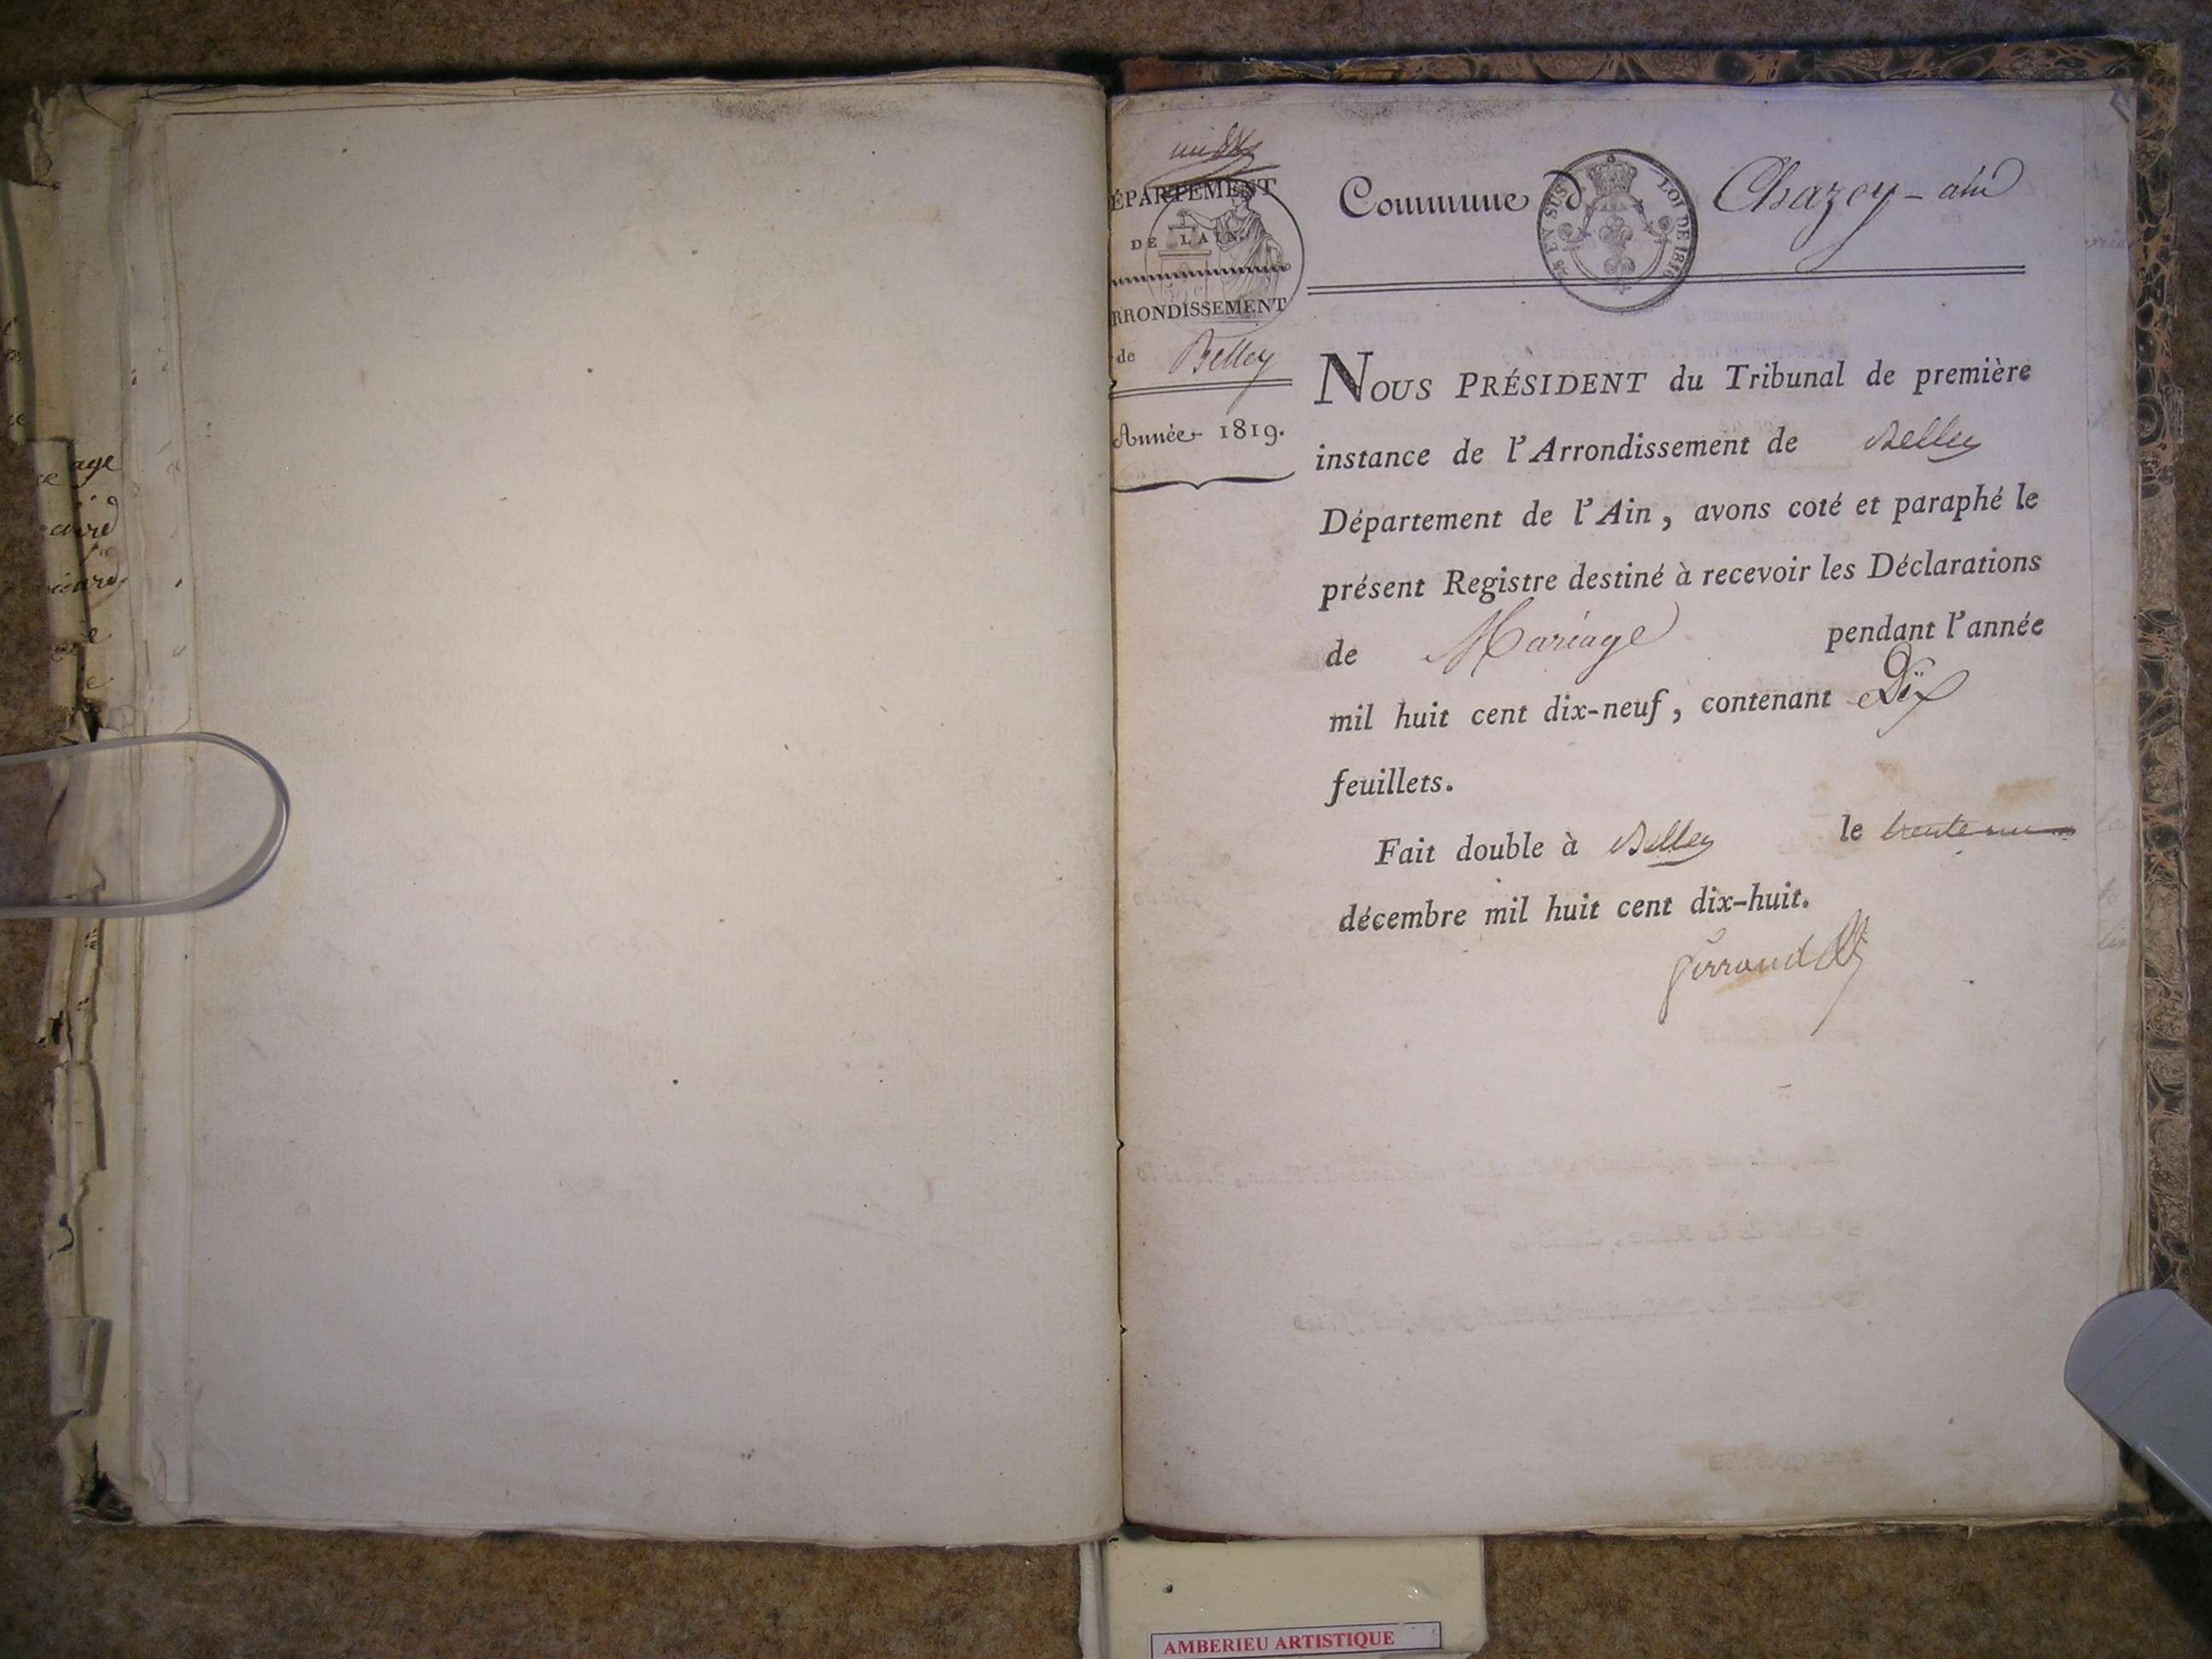 age
ÉPARTEMENT
DE L'AIN.
RRONDISSEMENT
de Belley
Année 1819.
Commune d Chazey-ain
EN SUS
LOI DE 1816
NOUS PRÉSIDENT du Tribunal de première
instance de l'Arrondissement de Belley
Département de l'Ain, avons coté et paraphé le
présent Registre destiné à recevoir les Déclarations
de Mariage pendant l'année
mil huit cent dix-neuf, contenant Dix
feuillets.
Fait double à Belley le trente un
décembre mil huit cent dix-huit.
AMBERIEU ARTISTIQUE